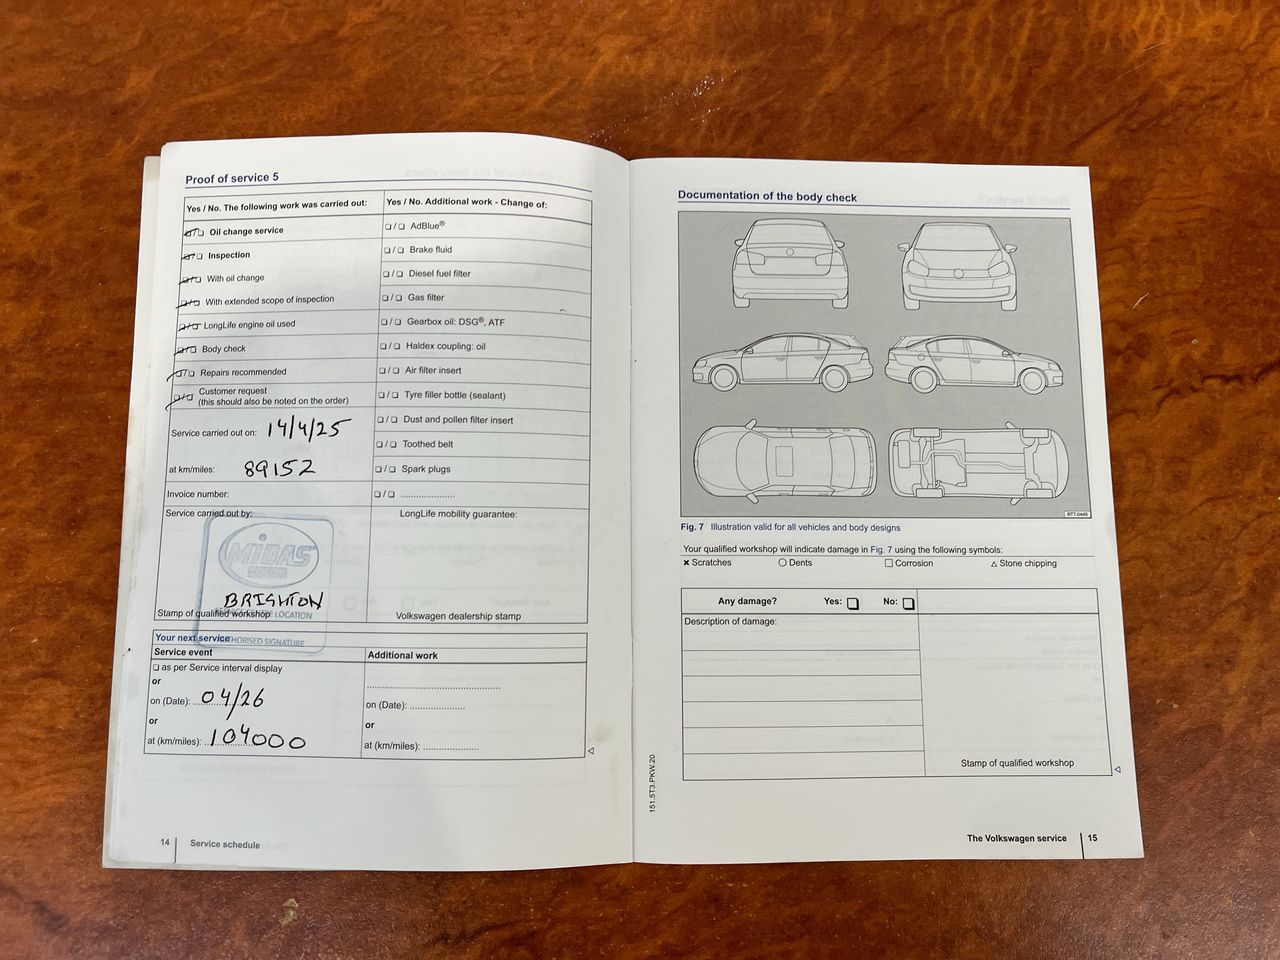 Proof of service 5
Yes / No. The following work was carried out:
☐/☐ Oil change service
☐/☐ Inspection
☐/☐ With oil change
☐/☐ With extended scope of inspection
☐/☐ LongLife engine oil used
☐/☐ Body check
☐/☐ Repairs recommended
☐/☐ Customer request
(this should also be noted on the order)
Service carried out on: 14/4/25
at km/miles: 89152
Invoice number:
Service carried out by:
MIDAS
BRIGHTON
LOCATION
Stamp of qualified workshop
AUTHORISED SIGNATURE
Yes / No. Additional work - Change of:
☐/☐ AdBlue®
☐/☐ Brake fluid
☐/☐ Diesel fuel filter
☐/☐ Gas filter
☐/☐ Gearbox oil: DSG®, ATF
☐/☐ Haldex coupling: oil
☐/☐ Air filter insert
☐/☐ Tyre filler bottle (sealant)
☐/☐ Dust and pollen filter insert
☐/☐ Toothed belt
☐/☐ Spark plugs
☐/☐ .....................
LongLife mobility guarantee:
Volkswagen dealership stamp
Your next service
Service event
☐ as per Service interval display
or
on (Date): 04/26
or
at (km/miles): 104000
Additional work
..................................................
on (Date): .....................
or
at (km/miles): .....................
14 Service schedule
Documentation of the body check
BTT-0449
Fig. 7 Illustration valid for all vehicles and body designs
Your qualified workshop will indicate damage in Fig. 7 using the following symbols:
× Scratches ○ Dents □ Corrosion △ Stone chipping
Any damage? Yes: ☐ No: ☐
Description of damage:
Stamp of qualified workshop
151.5T3.PKW.20
The Volkswagen service 15